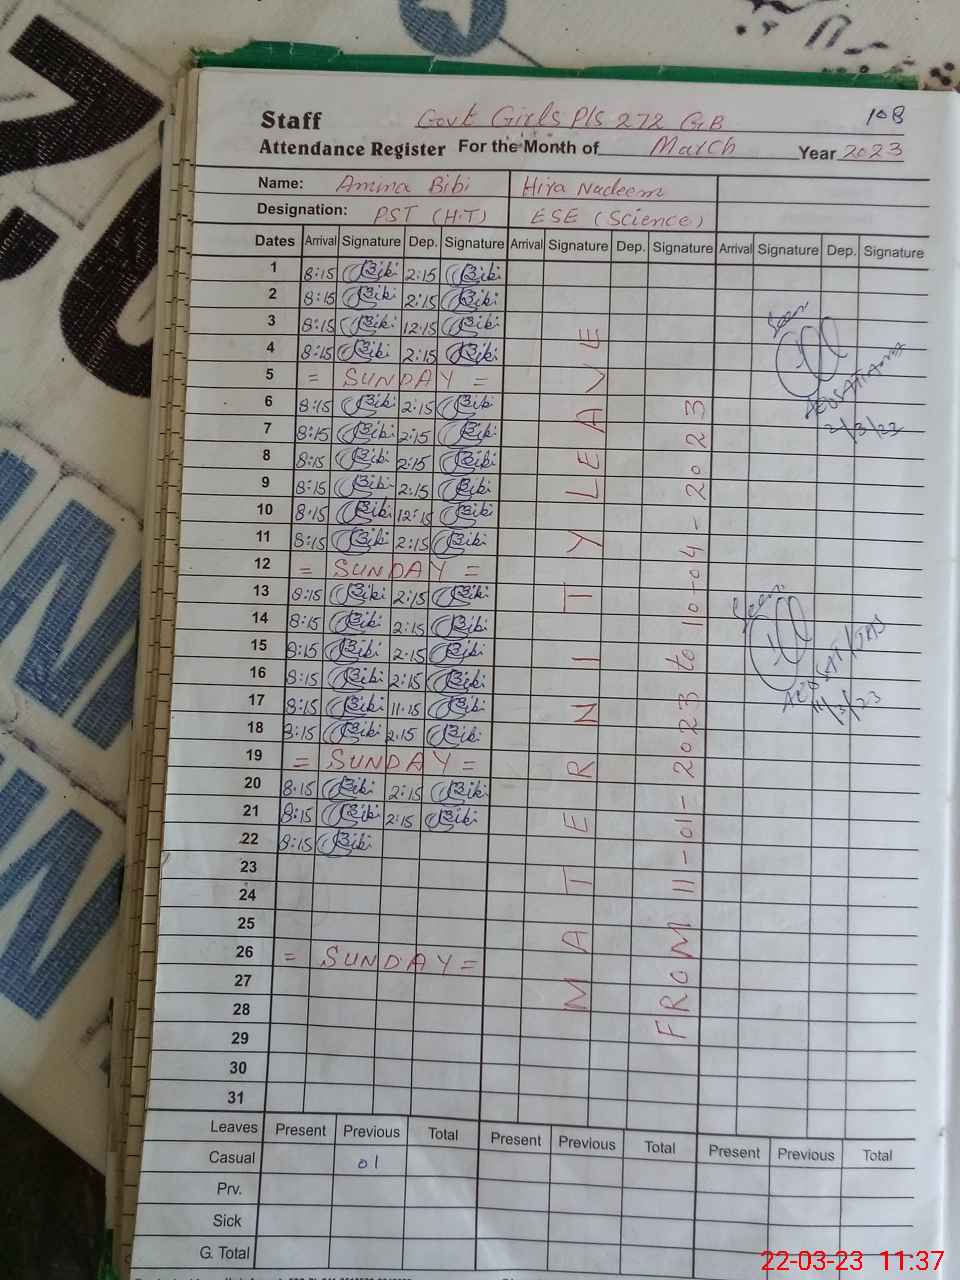 108
Staff Govt Girls P/S 272 GB
Attendance Register For the Month of March Year 2023
Name: Amna Bibi Hira Nadeem
Designation: PST (H.T) ESE (Science)
Dates Arrival Signature Dep. Signature Arrival Signature Dep. Signature Arrival Signature Dep. Signature
1 8:15 Bibi 2:15 Bibi
2 8:15 Bibi 2:15 Bibi
3 8:15 Bibi 12:15 Bibi
4 8:15 Bibi 2:15 Bibi
5 = SUNDAY =
6 8:15 Bibi 2:15 Bibi
7 8:15 Bibi 2:15 Bibi
8 8:15 Bibi 2:15 Bibi
9 8:15 Bibi 2:15 Bibi
10 8:15 Bibi 12:15 Bibi
11 8:15 Bibi 2:15 Bibi
12 = SUNDAY =
13 8:15 Bibi 2:15 Bibi
14 8:15 Bibi 2:15 Bibi
15 8:15 Bibi 2:15 Bibi
16 8:15 Bibi 2:15 Bibi
17 8:15 Bibi 11:15 Bibi
18 8:15 Bibi 2:15 Bibi
19 = SUNDAY =
20 8:15 Bibi 2:15 Bibi
21 8:15 Bibi 2:15 Bibi
22 8:15 Bibi
23
24
25
26 = SUNDAY =
27
28
29
30
31
MATERNITY LEAVE
FROM 11-01-2023 to 10-04-2023
Seen
2/3/23
Seen
Leaves Present Previous Total Present Previous Total Present Previous Total
Casual 01
Prv.
Sick
G. Total
22-03-23 11:37